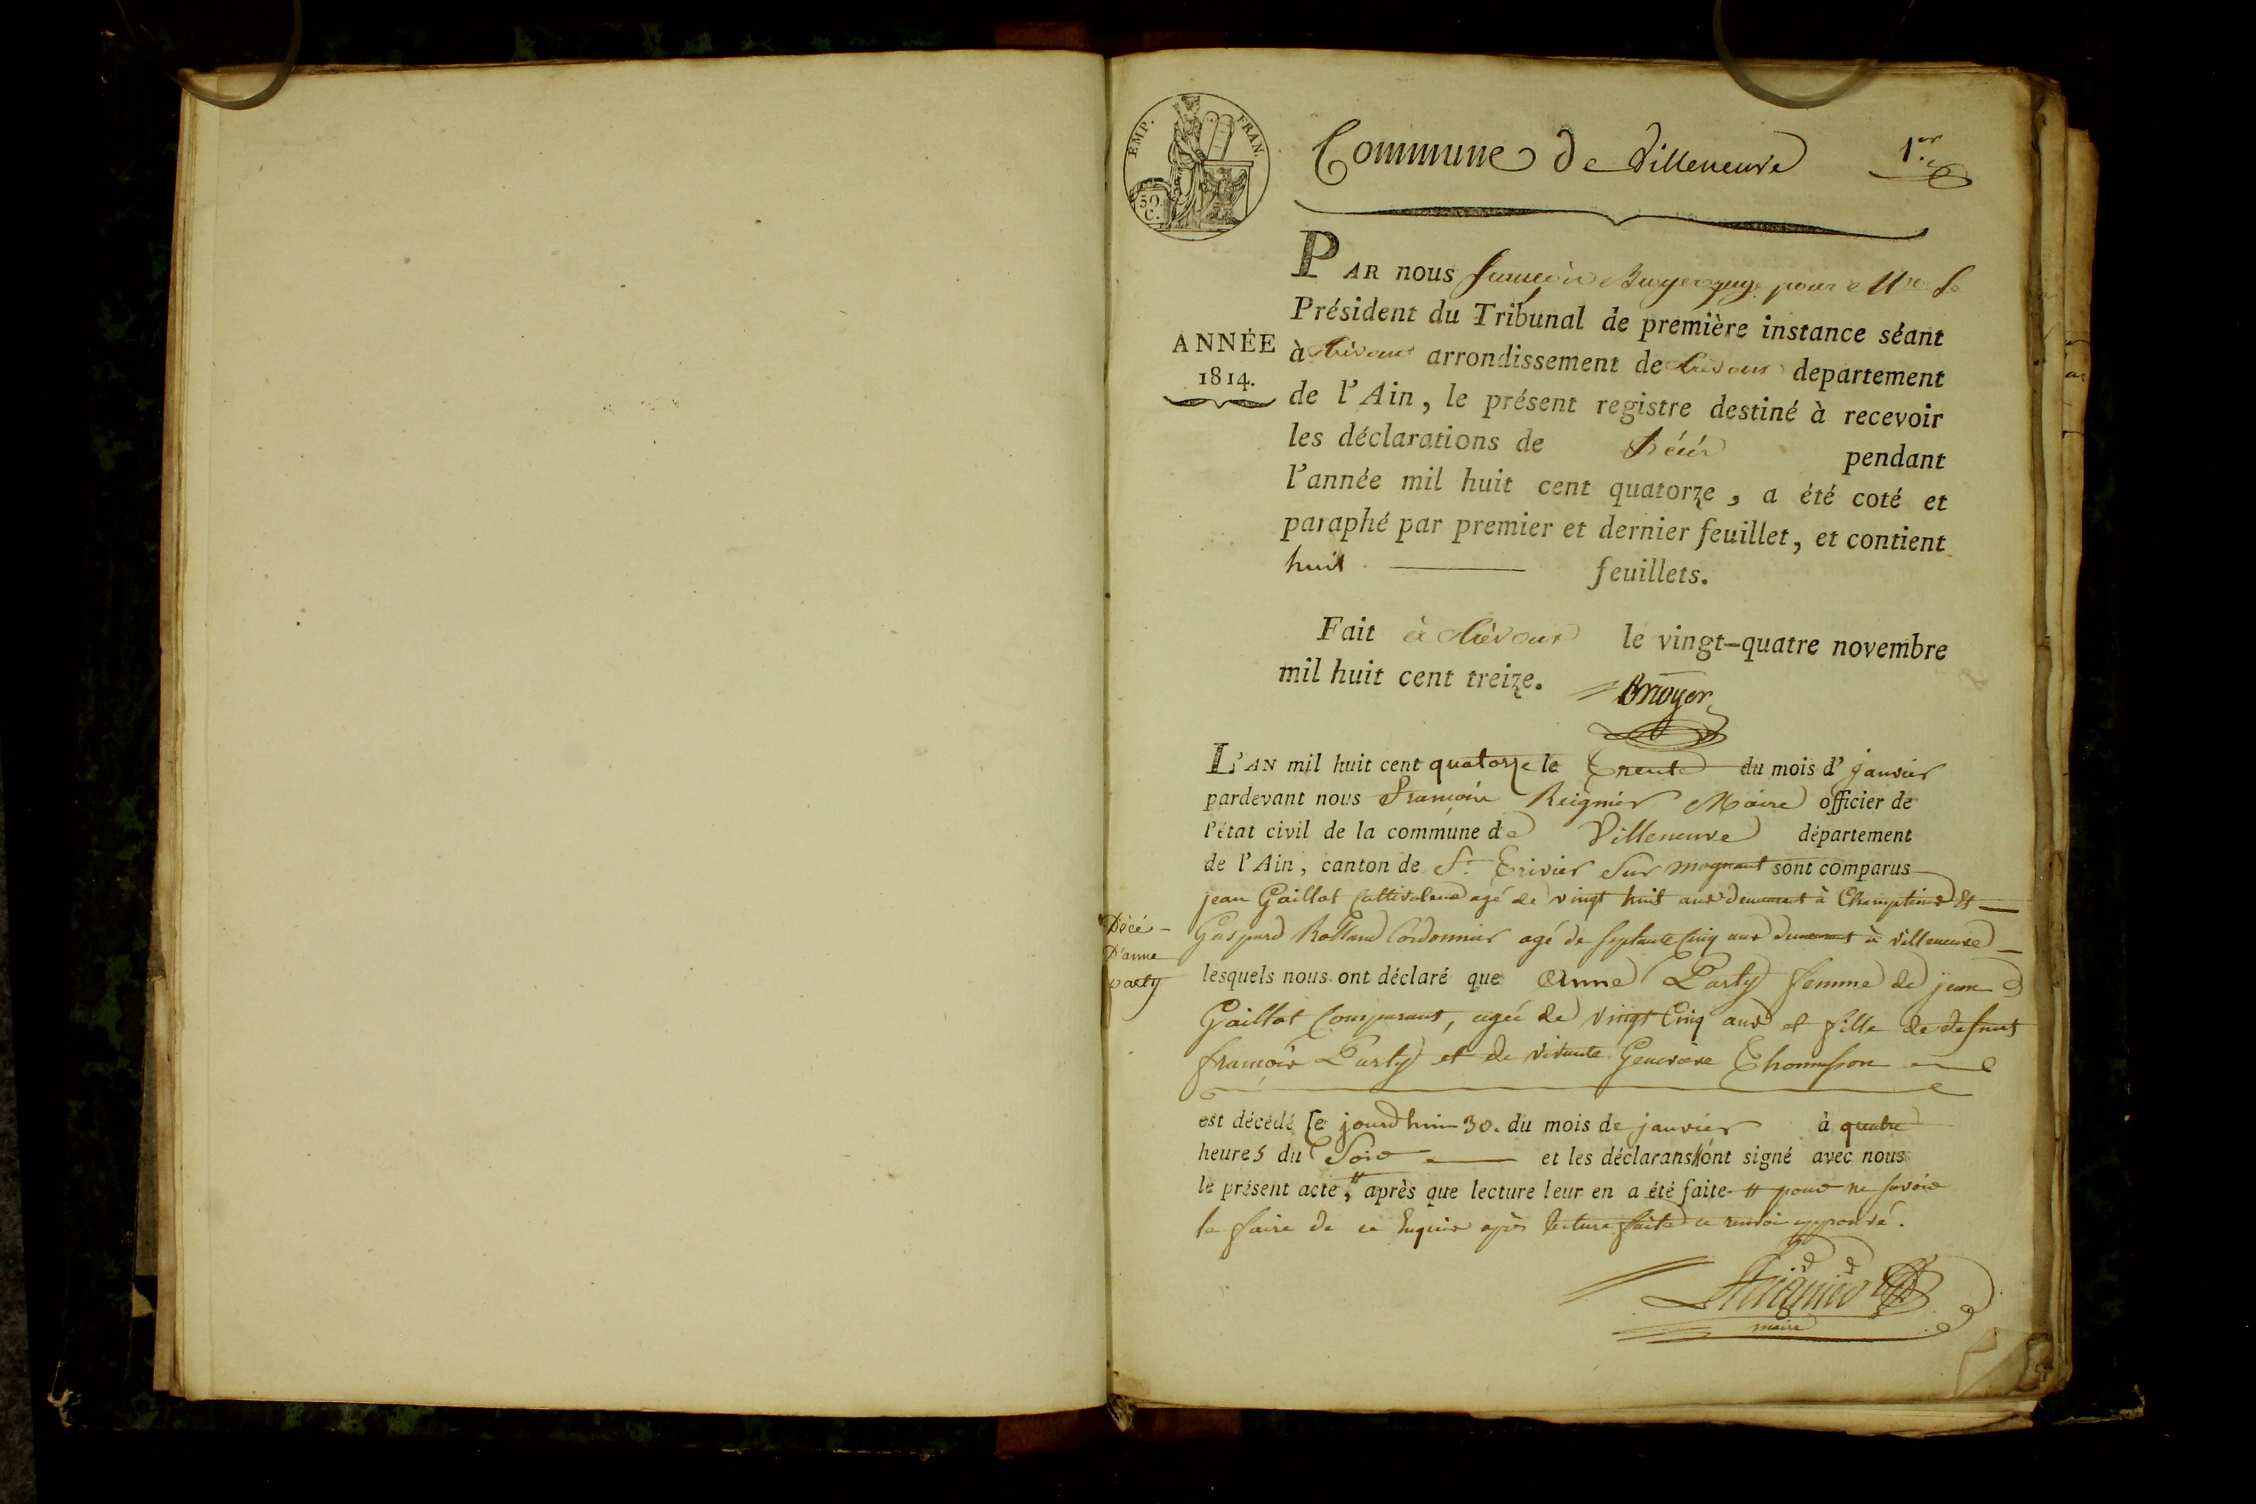 EMP. FRAN.
50. C.
Commune de Villeneuve
1er
PAR nous juge pour Mr le
Président du Tribunal de première instance séant
à trévoux arrondissement de trévoux departement
de l'Ain, le présent registre destiné à recevoir
les déclarations de décés pendant
l'année mil huit cent quatorze, a été coté et
paraphé par premier et dernier feuillet, et contient
huit feuillets.
ANNÉE
1814.
Fait à trévoux le vingt-quatre novembre
mil huit cent treize.
L'AN mil huit cent quatorze le Trente du mois d' janvier
pardevant nous François Reignier Maire officier de
l'état civil de la commune de Villeneuve département
de l'Ain, canton de St. Trivier Sur mognant sont comparus
jean Gaillot Cultivateur agé de vingt huit ans demeurant à Champteins &
Gaspard Rolland Cordonnier agé de septante Cinq ans demeurant à villeneuve
lesquels nous ont déclaré que Anne Party femme de jean
Gaillot Comparant, agée de vingt Cinq ans et fille de defunt
françois Party et de vivante Genevieve Thomasson
Décé-
D'anne
party
est décédé le jourdhui 30. du mois de janvier à quatre
heures du Soir et les déclarans ont signé avec nous
le présent acte, # après que lecture leur en a été faite # pour ne savoir
le faire de ce Enquis après lecture faite ce renvoi approuvé.
Reignier
maire